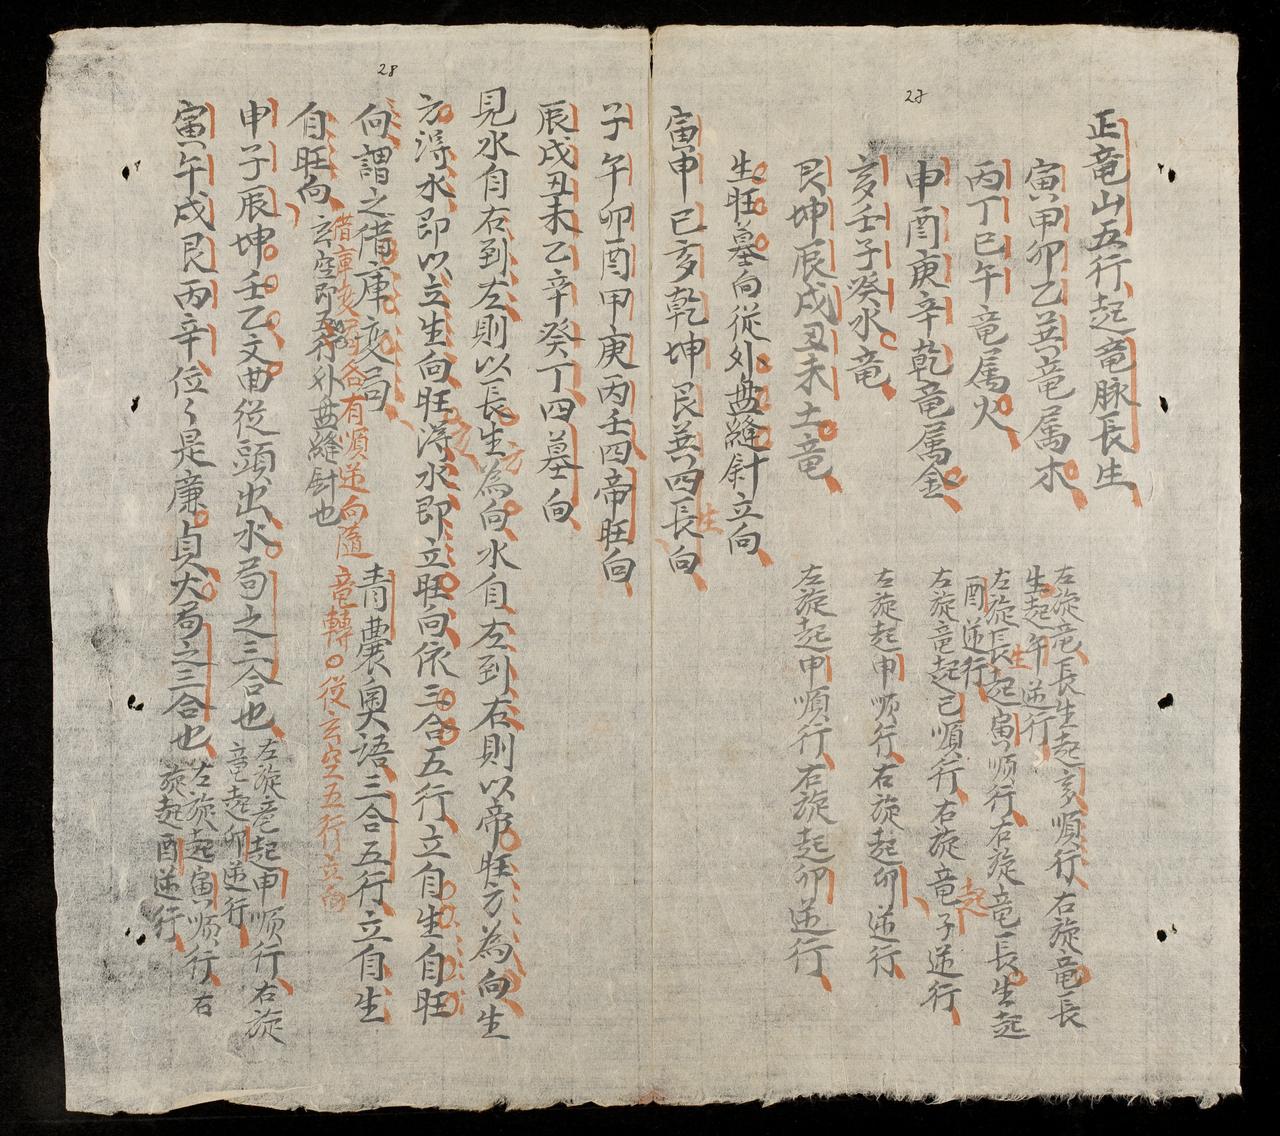 27
正竜山五行起竜脉長生
寅甲卯乙巽竜属木
左旋竜長生起亥順行右旋竜長
生起午逆行
丙丁巳午竜属火
左旋長生起寅順行右旋竜長生起
酉逆行
申酉庚辛乾竜属金
左旋竜起巳順行右旋竜起子逆行
亥壬子癸水竜
左旋起申順行右旋起卯逆行
艮坤辰戌丑未土竜
左旋起申順行右旋起卯逆行
生旺墓向從外盘縫針立向
寅申巳亥乾坤艮巽四長生向
28
子午卯酉甲庚丙壬四帝旺向
辰戌丑未乙辛癸丁四墓向
見水自右到左則以長生方為向水自左到右則以帝旺方為向生
方淂水即以立生向旺方淂水即立旺向依三合五行立自生自旺
向謂之借庫変局 青囊奥語三合五行立自生
借庫変局各有順逆向隨竜轉〇從玄空五行立向
自旺向 玄空即五行外盘縫針也
申子辰坤壬乙文曲從頭出水局之三合也 左旋竜起申順行右旋
竜起卯逆行
寅午戌艮丙辛位々是廉貞火局之三合也 左旋起寅順行右
旋起酉逆行